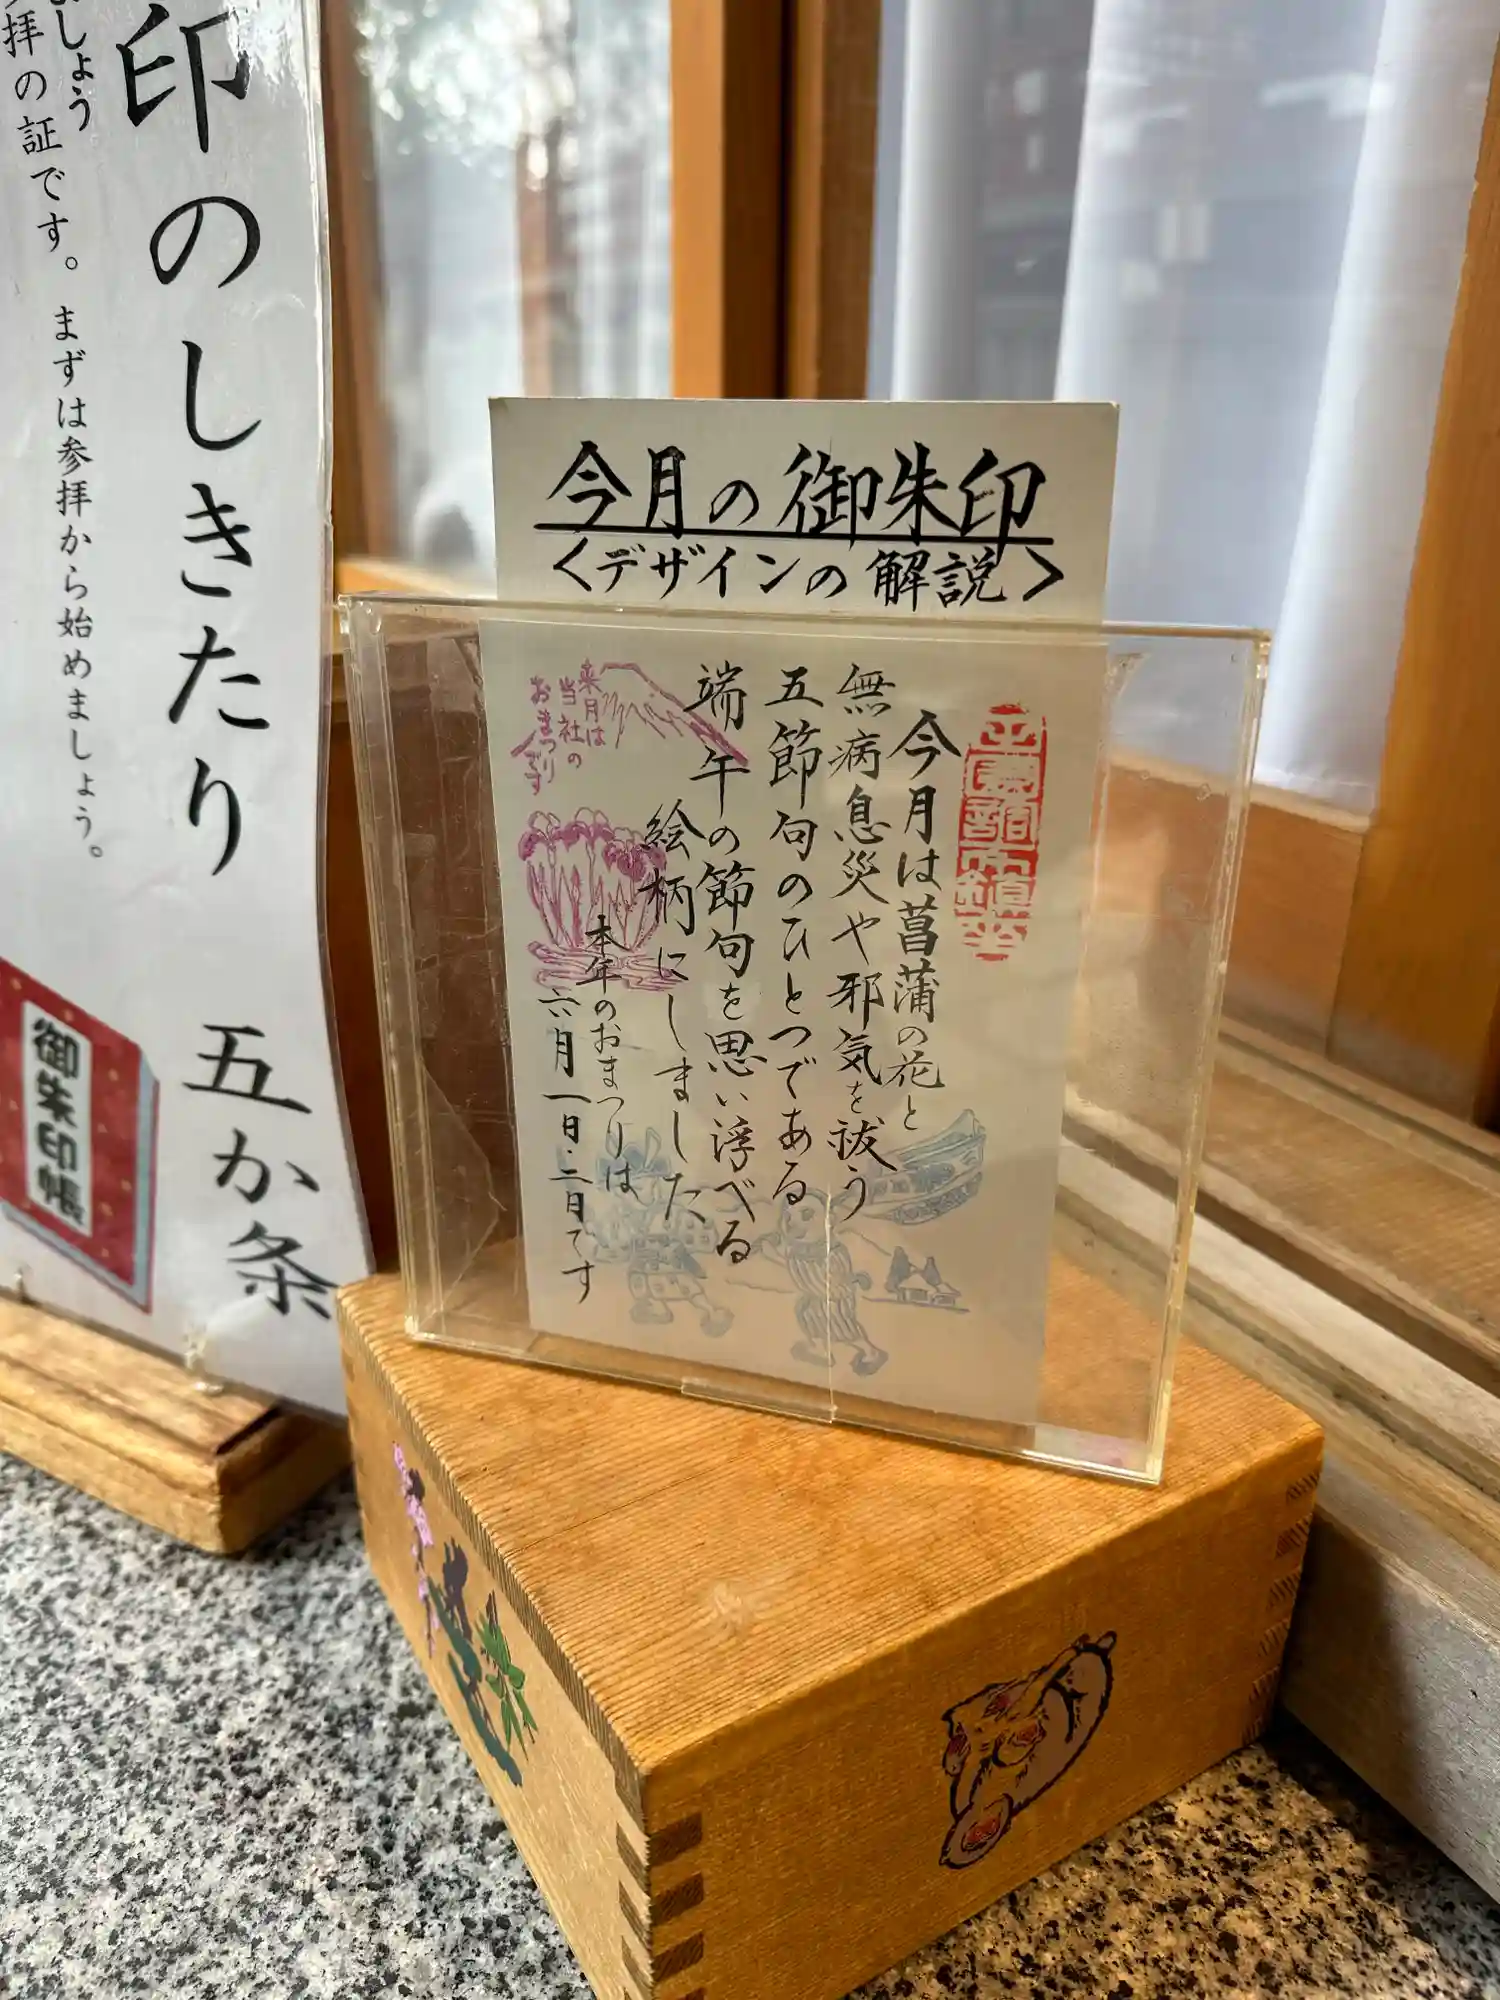 印のしきたり 五か条
ましょう
拝の証です。まずは参拝から始めましょう。
御朱印帳
今月の御朱印
<デザインの解説>
今月は菖蒲の花と
無病息災や邪気を祓う
五節句のひとつである
端午の節句を思い浮べる
絵柄にしました
本年のおまつりは
六月一日・二日です
来月は
当社の
おまつり
です